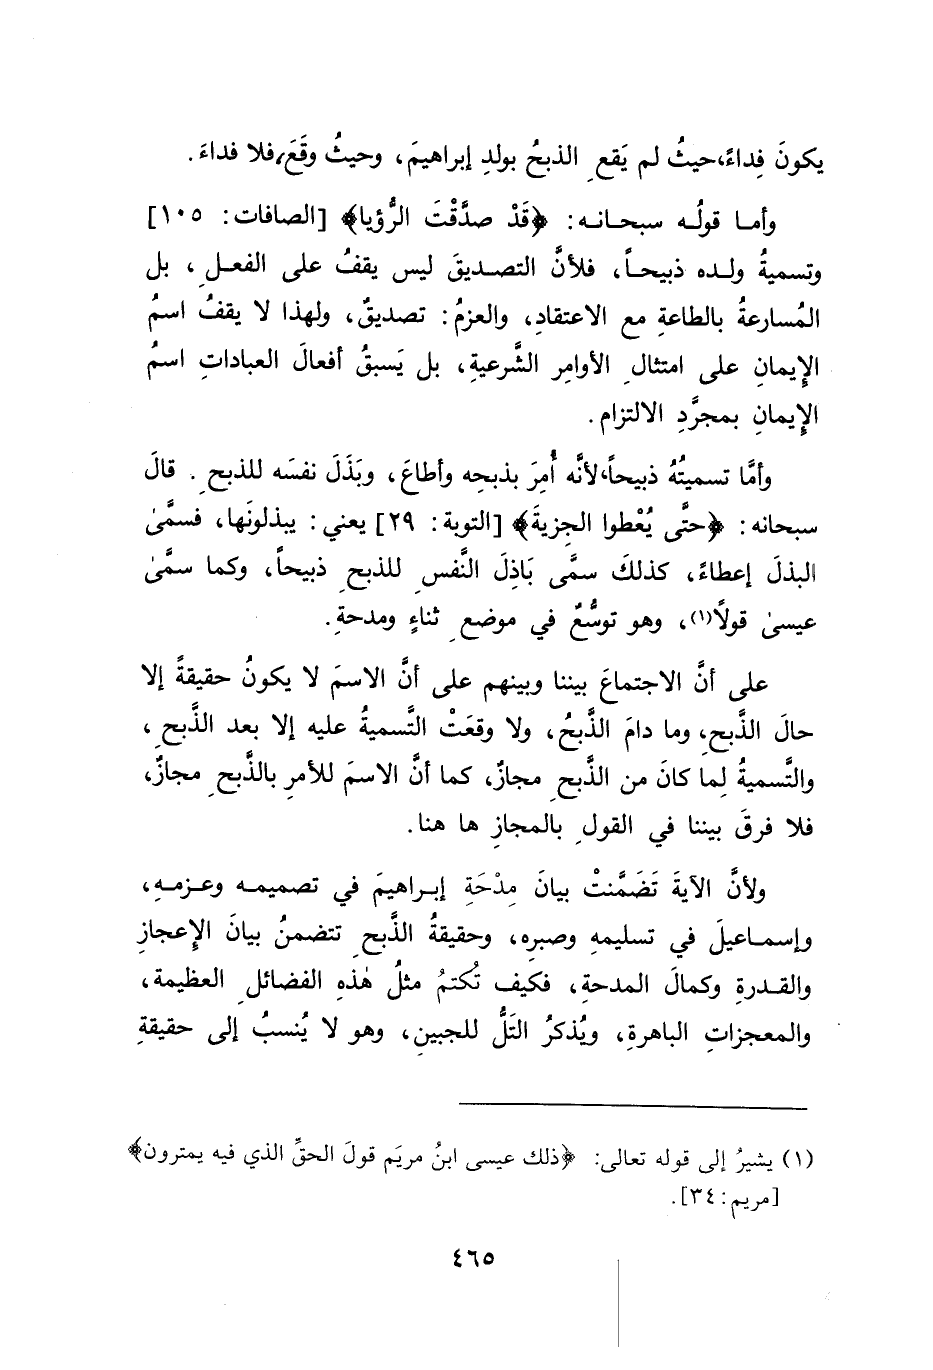 يكونَ فِداءً، حيثُ لم يَقعِ الذبحُ بولدِ إبراهيمَ، وحيثُ وقَعَ، فلا فداءَ.
وأما قولُه سبحانه: ﴿قَدْ صدَّقْتَ الرُّؤيا﴾ [الصافات: ١٠٥]
وتسميةُ ولده ذبيحاً، فلأنَّ التصديقَ ليس يقفُ على الفعلِ، بل
المُسارعةُ بالطاعةِ مع الاعتقادِ، والعزمُ: تصديقٌ، ولهذا لا يقفُ اسمُ
الإِيمانِ على امتثالِ الأوامِر الشَّرعيةِ، بل يَسبقُ أفعالَ العباداتِ اسمُ
الإِيمانِ بمجرَّدِ الالتزام.
وأمَّا تسميتُهُ ذبيحاً، لأنَّه أُمِرَ بذبحِه وأطاعَ، وبَذَلَ نفسَه للذبحِ. قالَ
سبحانه: ﴿حتَّى يُعْطوا الجِزيةَ﴾ [التوبة: ٢٩] يعني: يبذلونَها، فسمَّىٰ
البذلَ إعطاءً، كذلكَ سمَّى بَاذِلَ النَّفسِ للذبحِ ذبيحاً، وكما سمَّىٰ
عيسىٰ قولاً(١)، وهو توسُّعٌ في موضعِ ثناءٍ ومدحةِ.
على أنَّ الاجتماعَ بيننا وبينهم على أنَّ الاسمَ لا يكونُ حقيقةً إلا
حالَ الذَّبحِ، وما دامَ الذَّبحُ، ولا وقعَتْ التَّسميةُ عليه إلا بعد الذَّبحِ،
والتَّسميةُ لِما كانَ من الذَّبحِ مجازٌ، كما أنَّ الاسمَ للأمرِ بالذَّبحِ مجازٌ،
فلا فرقَ بيننا في القولِ بالمجازِ ها هنا.
ولأنَّ الآيةَ تَضَمَّنتْ بيانَ مِدْحَةِ إبراهيمَ في تصميمه وعزمهِ،
وإسماعيلَ في تسليمهِ وصبرِه، وحقيقةُ الذَّبحِ تتضمنُ بيانَ الإِعجازِ
والقدرةِ وكمالَ المدحةِ، فكيف تُكتمُ مثلُ هٰذهِ الفضائلِ العظيمة،
والمعجزاتِ الباهرةِ، ويُذكرُ التَلُّ للجبينِ، وهو لا يُنسبُ إلى حقيقةِ
(١) يشيرُ إلى قوله تعالى: ﴿ذلك عيسى ابنُ مريَم قولَ الحقِّ الذي فيه يمترون﴾
[مريم: ٣٤].
٤٦٥